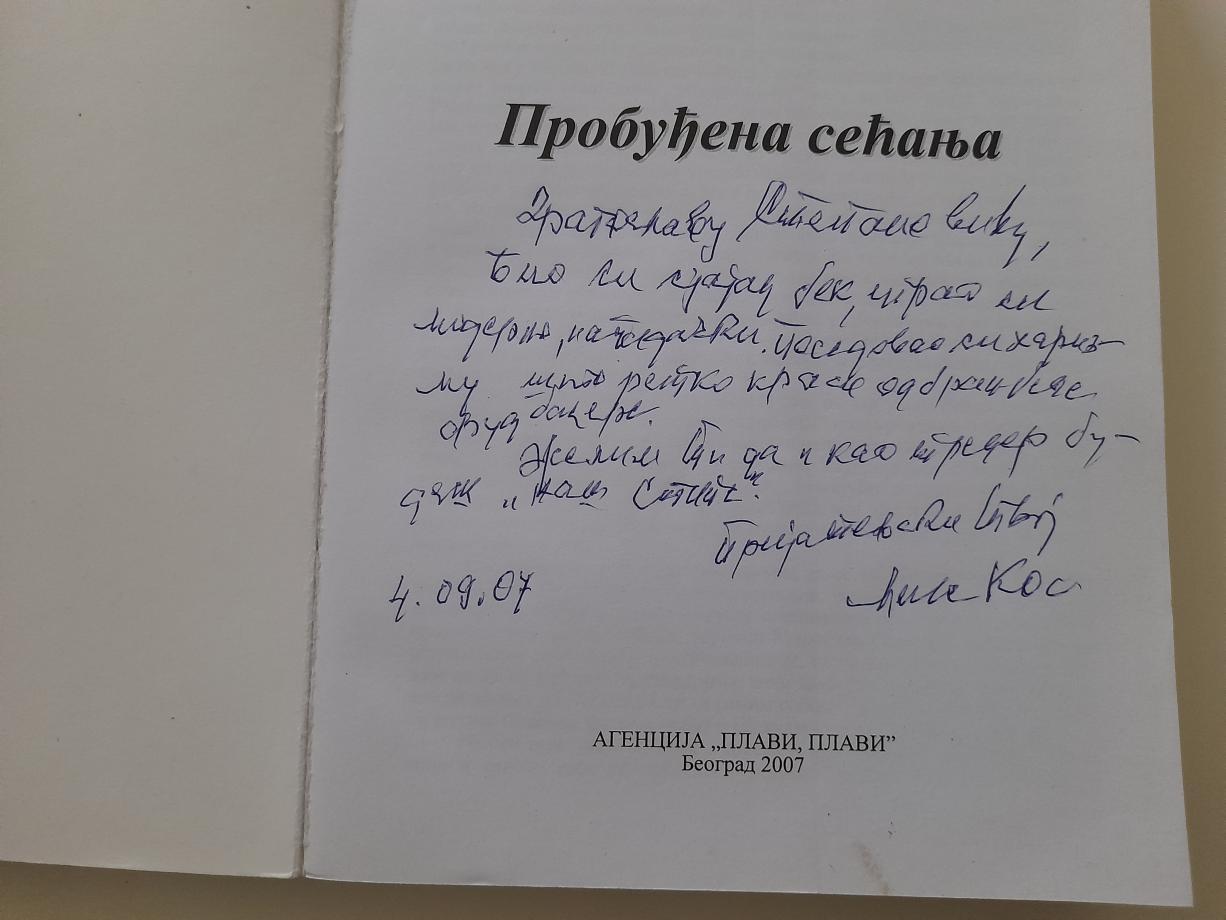 Пробуђена сећања
Степановићу,
Био си сјајан бек, играо си
модерно, нападачки. Поседовао си хариз-
му што ретко краси одбрамбене
фудбалере.
Желим Ти да и као тренер бу-
деш „наш
Пријатељски Твој
4. 09. 07
Кос
АГЕНЦИЈА „ПЛАВИ, ПЛАВИ”
Београд 2007